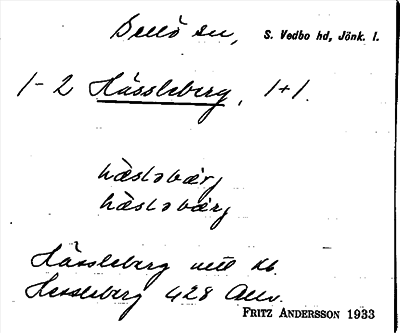 Bellö sn, S. Vedbo hd, Jönk. l.
1-2 Hässleberg, 1+1.
hàsləbærj
hàsləbærj
Hässleberg
Hessleberg 428
FRITZ ANDERSSON 1933